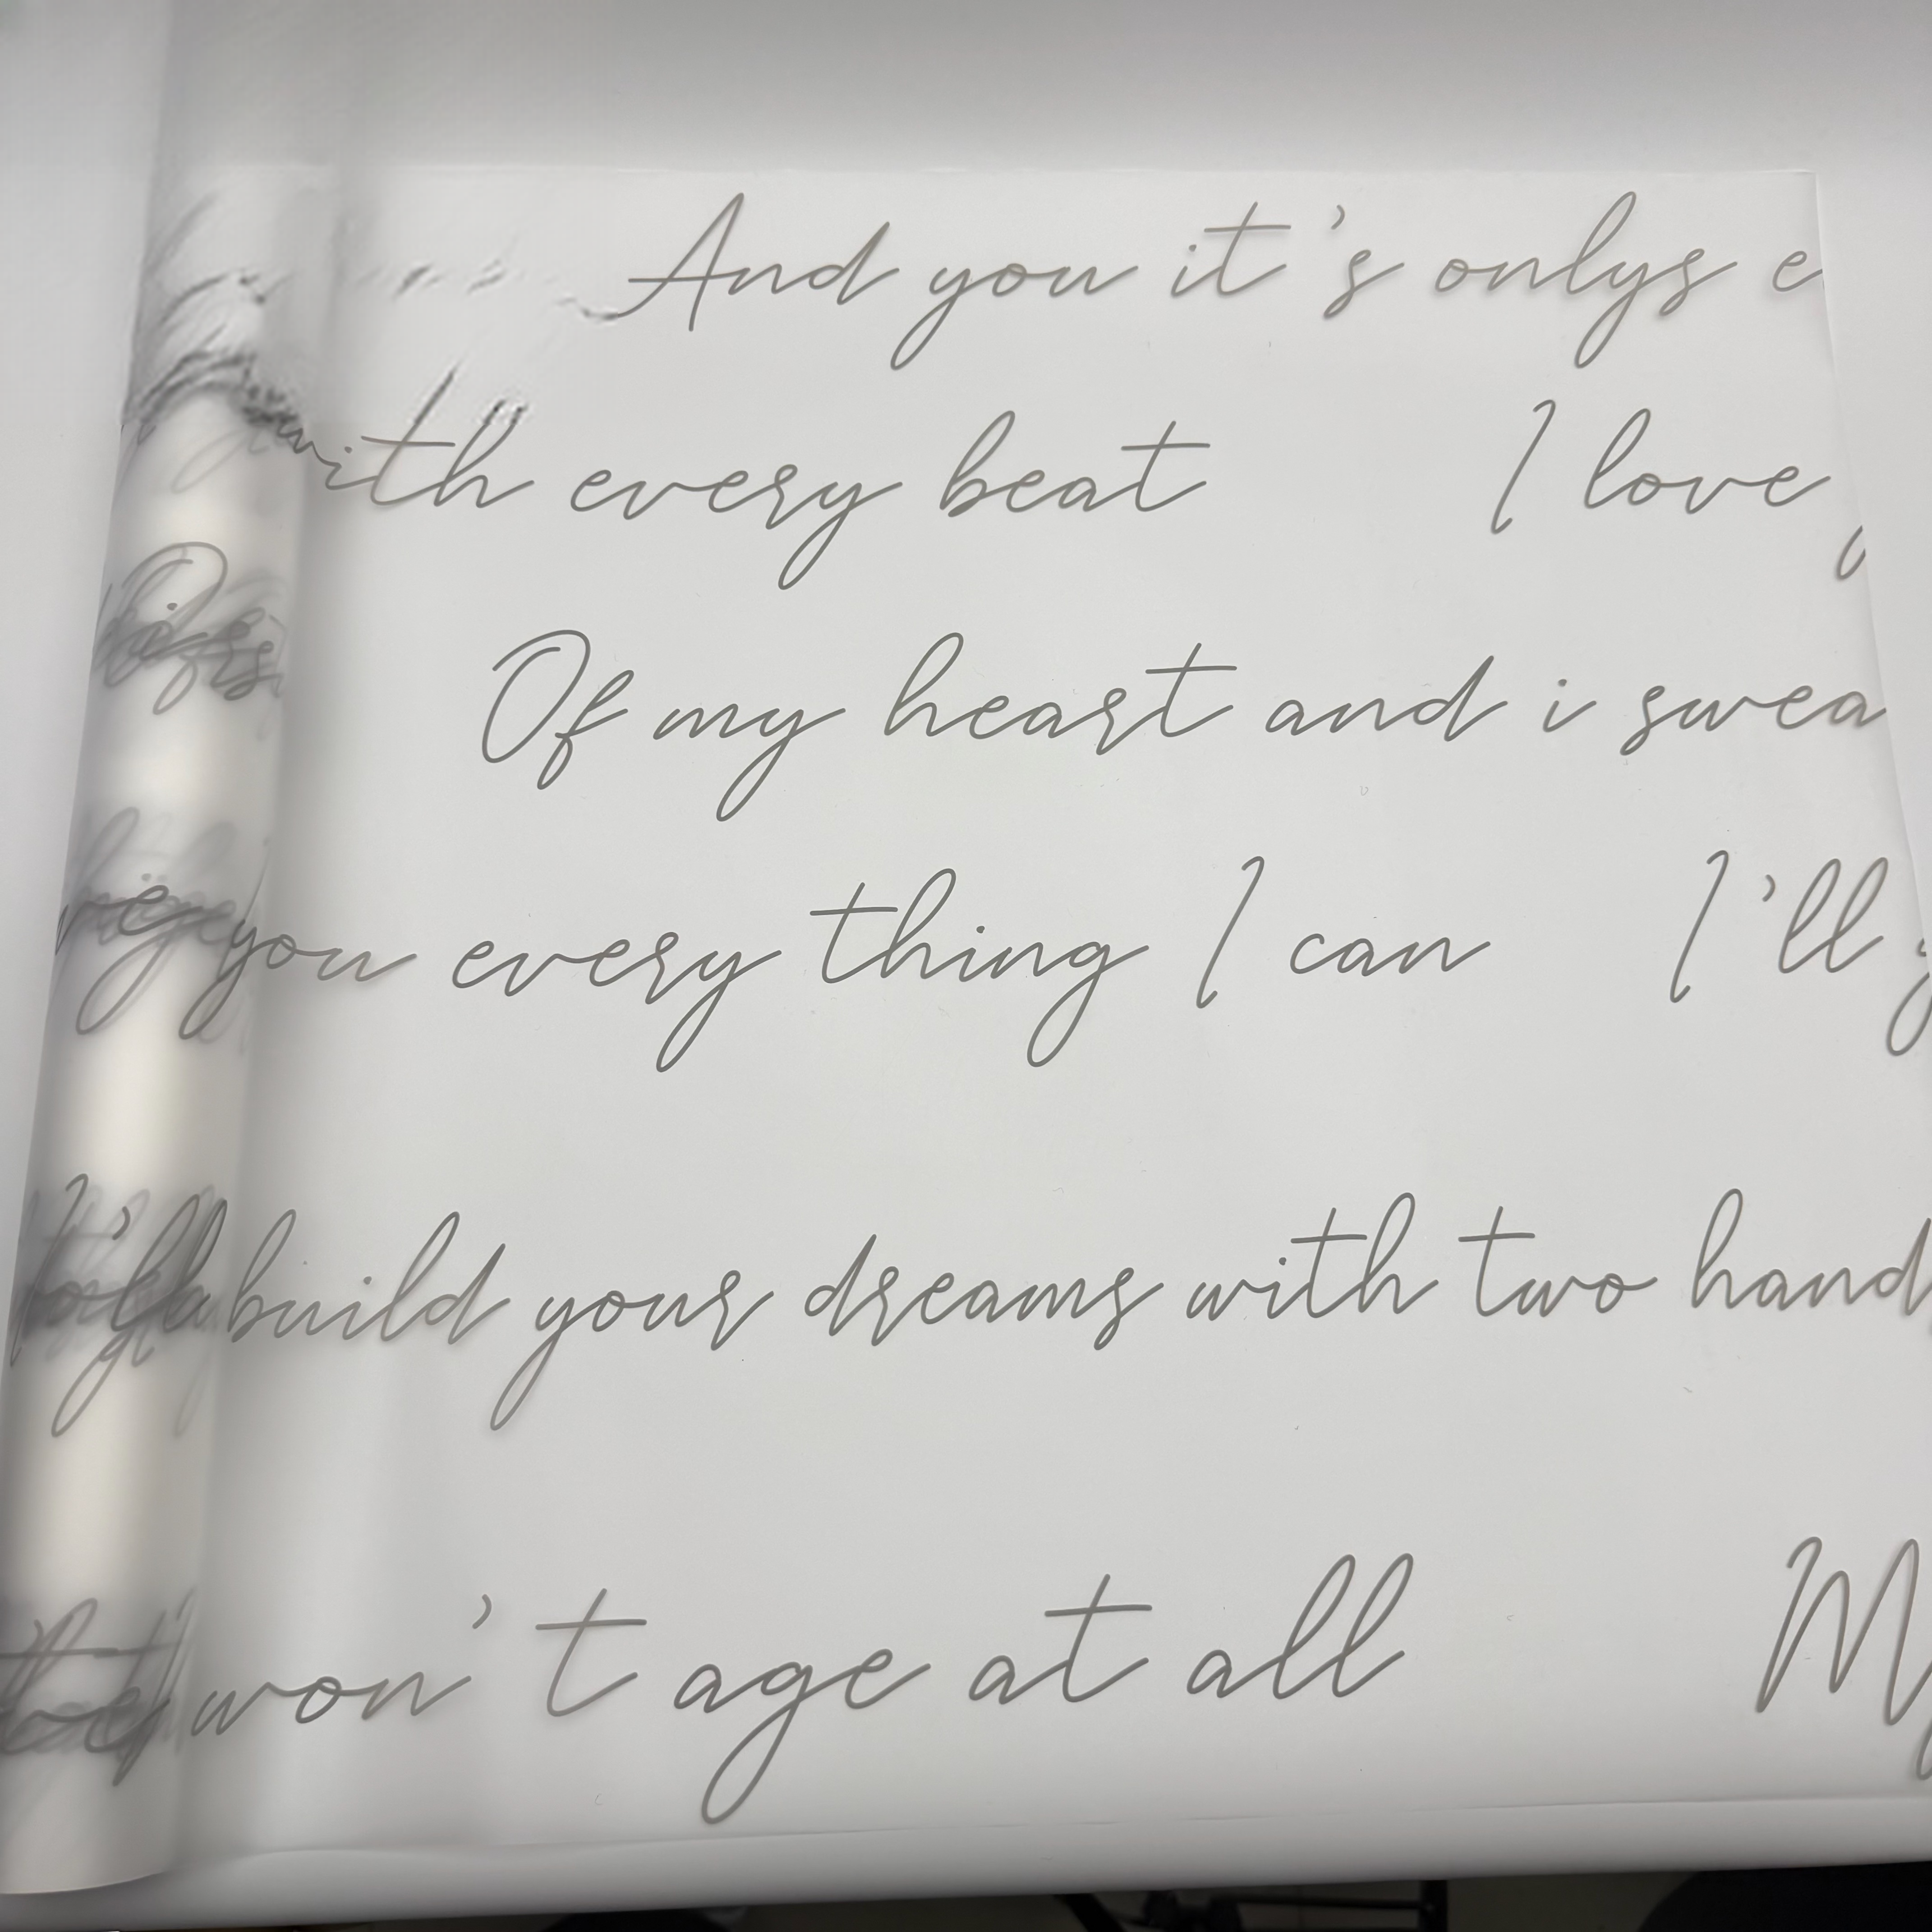 And you it's onlys
with every beat I love
Of my heart and i swea
you every thing I can I'll
build your dreams with two hand
won't age at all